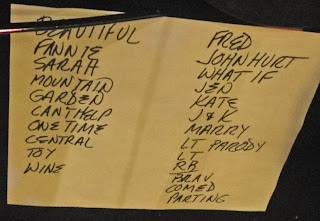 BEAUTIFUL
FANNIE
SARAH
MOUNTAIN
GARDEN
CAN'T HELP
ONE TIME
CENTRAL
TOY
WINE
FRED
JOHN HURT
WHAT IF
JEN
KATE
J & K
MARRY
LT PARODY
LT
RB
BRAV
COMED
PARTING